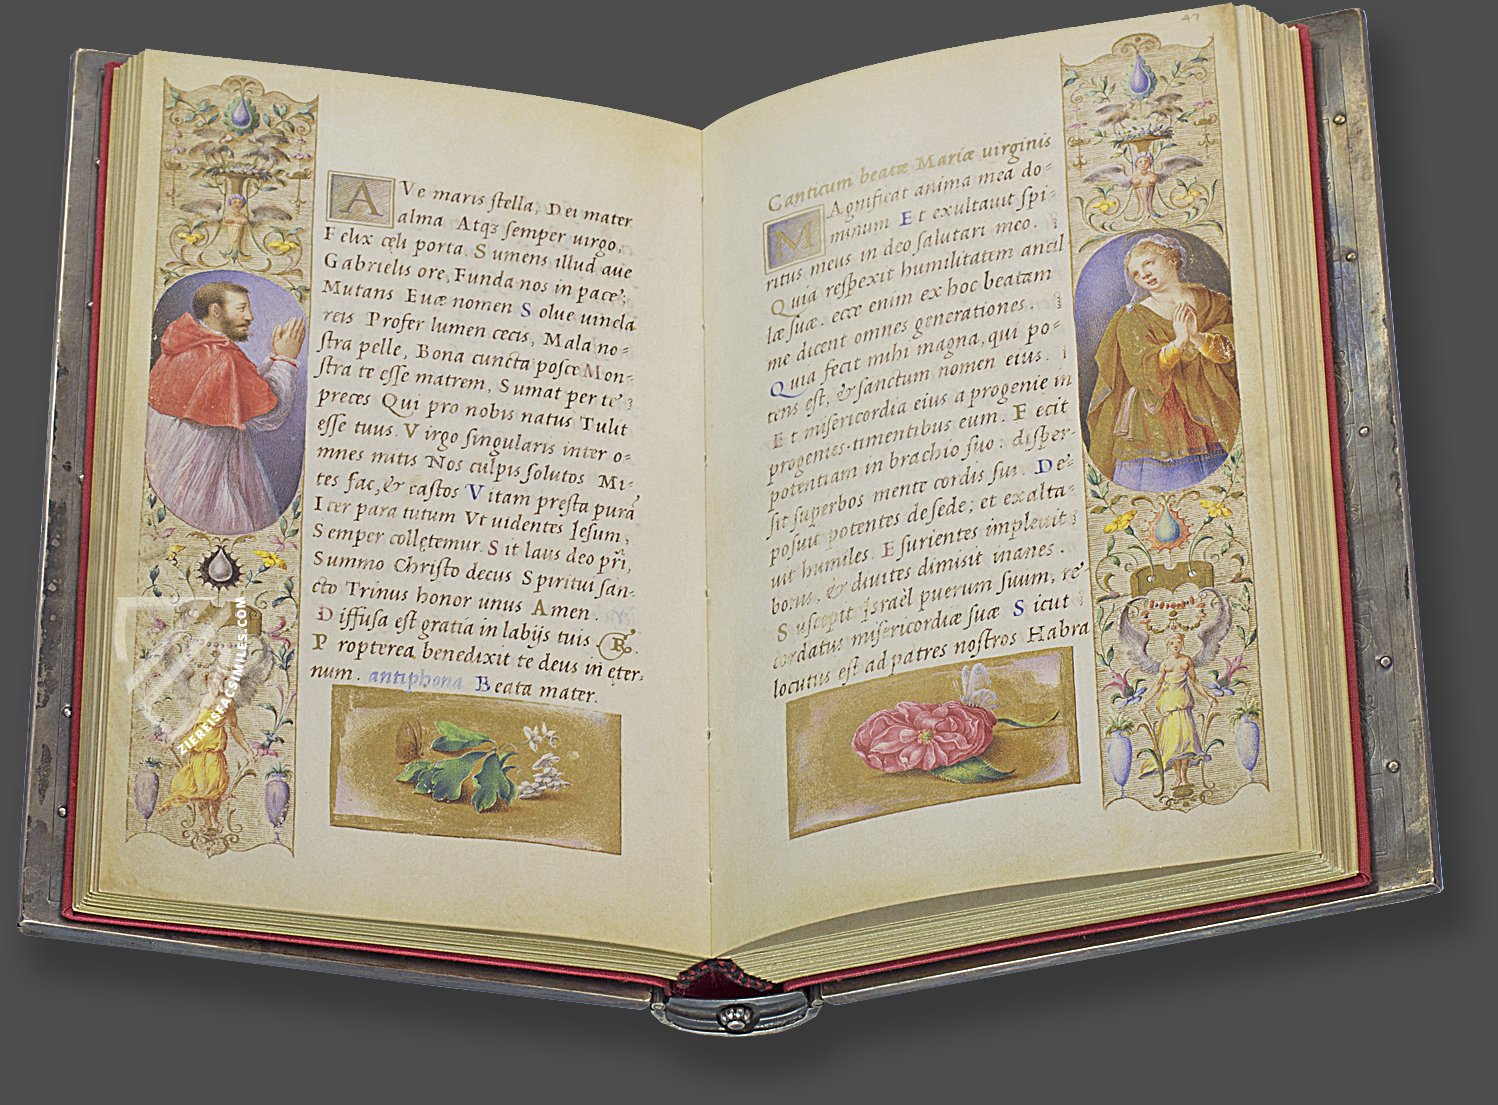 AVe maris stella, Dei mater
alma Atqz semper uirgo,
Felix cęli porta. Sumens illud aue
Gabrielis ore, Funda nos in pace,
Mutans Euæ nomen Solue uincla
reis Profer lumen cecis, Mala no=
stra pelle, Bona cuncta posce Mon=
stra te esse matrem, Sumat per te
preces Qui pro nobis natus Tulit
esse tuus. Virgo singularis inter o=
mnes mitis Nos culpis solutos Mi=
tes fac, & castos Vitam pręsta purā
Iter para tutum Vt uidentes Iesum,
Semper collętemur. Sit laus deo pr̄i,
Summo Christo decus Spiritui san=
cto Trinus honor unus Amen.
Diffusa est gratia in labijs tuis ℞.
Propterea benedixit te deus in ęter=
num. antiphona Beata mater.
47
Canticum beatæ Mariæ uirginis
MAgnificat anima mea do=
minum Et exultauit spi=
ritus meus in deo salutari meo.
Quia respexit humilitatem ancil
læ suæ. ecce enim ex hoc beatam
me dicent omnes generationes.
Quia fecit mihi magna, qui po=
tens est, & sanctum nomen eius.
Et misericordia eius a progenie in
progenies timentibus eum. Fecit
potentiam in brachio suo: disper=
sit superbos mente cordis sui. De=
posuit potentes de sede; et exalta=
uit humiles. Esurientes impleuit
bonis, & diuites dimisit inanes.
Suscepit Israël puerum suum, re=
cordatus misericordiæ suæ Sicut
locutus est ad patres nostros Habra
ZIEREISFACSIMILES.COM